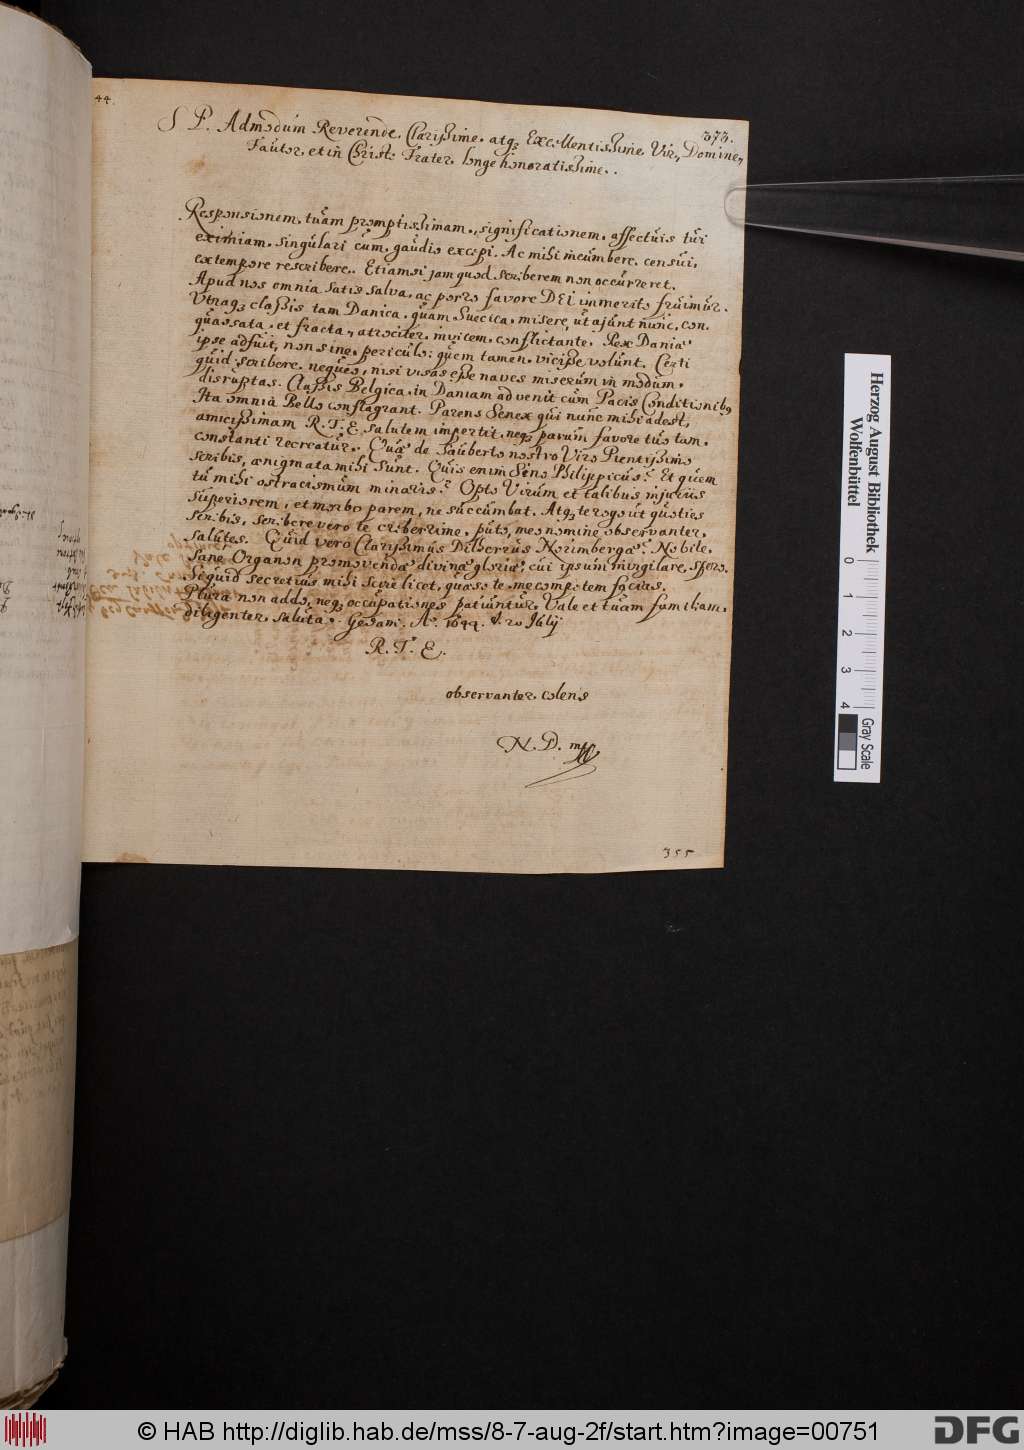 44.
373.
S P. Admodum Reverende, Clarissime, atq3 Excellentissime Vir, Domine,
Fautor, et in Christo Frater longe honoratissime.
Responsionem, tuam promptissimam, significationem, affectuis tui
eximiam, singulari cum, gaudio excepi. Ac mihi incumbere, censui,
extempore rescribere. Etiamsi jam quod scriberem non occurreret.
Apud nos omnia satis salva, ac porro favore DEI immerito fruimur.
Utraq3 classis tam Danica, quam Suecica, misere, ut ajunt nunc, con.
quassata, et fracta, atrociter, invicem, conflictante. Rex Daniæ
ipse adfuit, non sine, periculo; quem tamen, vicisse volunt. Certi
quid scribere, nequeo, nisi visas esse naves miserum in modum,
disruptas. Classis Belgica, in Daniam advenit cum Pacis Conditionib9
Ita omnia Bello conflagrant. Parens Senex qui nunc mihi adest,
amicissimam R.T.E. salutem impertit, neq3 parum favore tuo tam,
constanti recreatur. Quæ de Sauberto nostro Viro Pientissimo
scribis, ænigmata mihi sunt. Quis enim Seno Philippicus? Et quem
tu mihi ostracismum minaris? Opto Virum et talibus injuriis
superiorem, et morbo parem, ne succumbat. Atq3 te rogo ut quoties
scribis, scribere vero te creberrime, puto, meo nomine observanter,
salutes. Quid vero Clarissimus Dilherrus Norimbergæ? Nobile,
sane Organon promovendæ divinæ gloriæ, cui ipsum invigilare, spero.
Sequid secretius mihi scire licet, quæso te me compotem facias.
Plura non addo, neq3 occupationes patiuntur. Vale et tuam familiam,
diligenter, saluta. Gedani. Aº 1644. d. 20 Julij
R. T. E.
observanter, colens
N. D. mp
355
Herzog August Bibliothek
Wolfenbüttel
0 1 2 3 4
Gray Scale
© HAB http://diglib.hab.de/mss/8-7-aug-2f/start.htm?image=00751
DFG